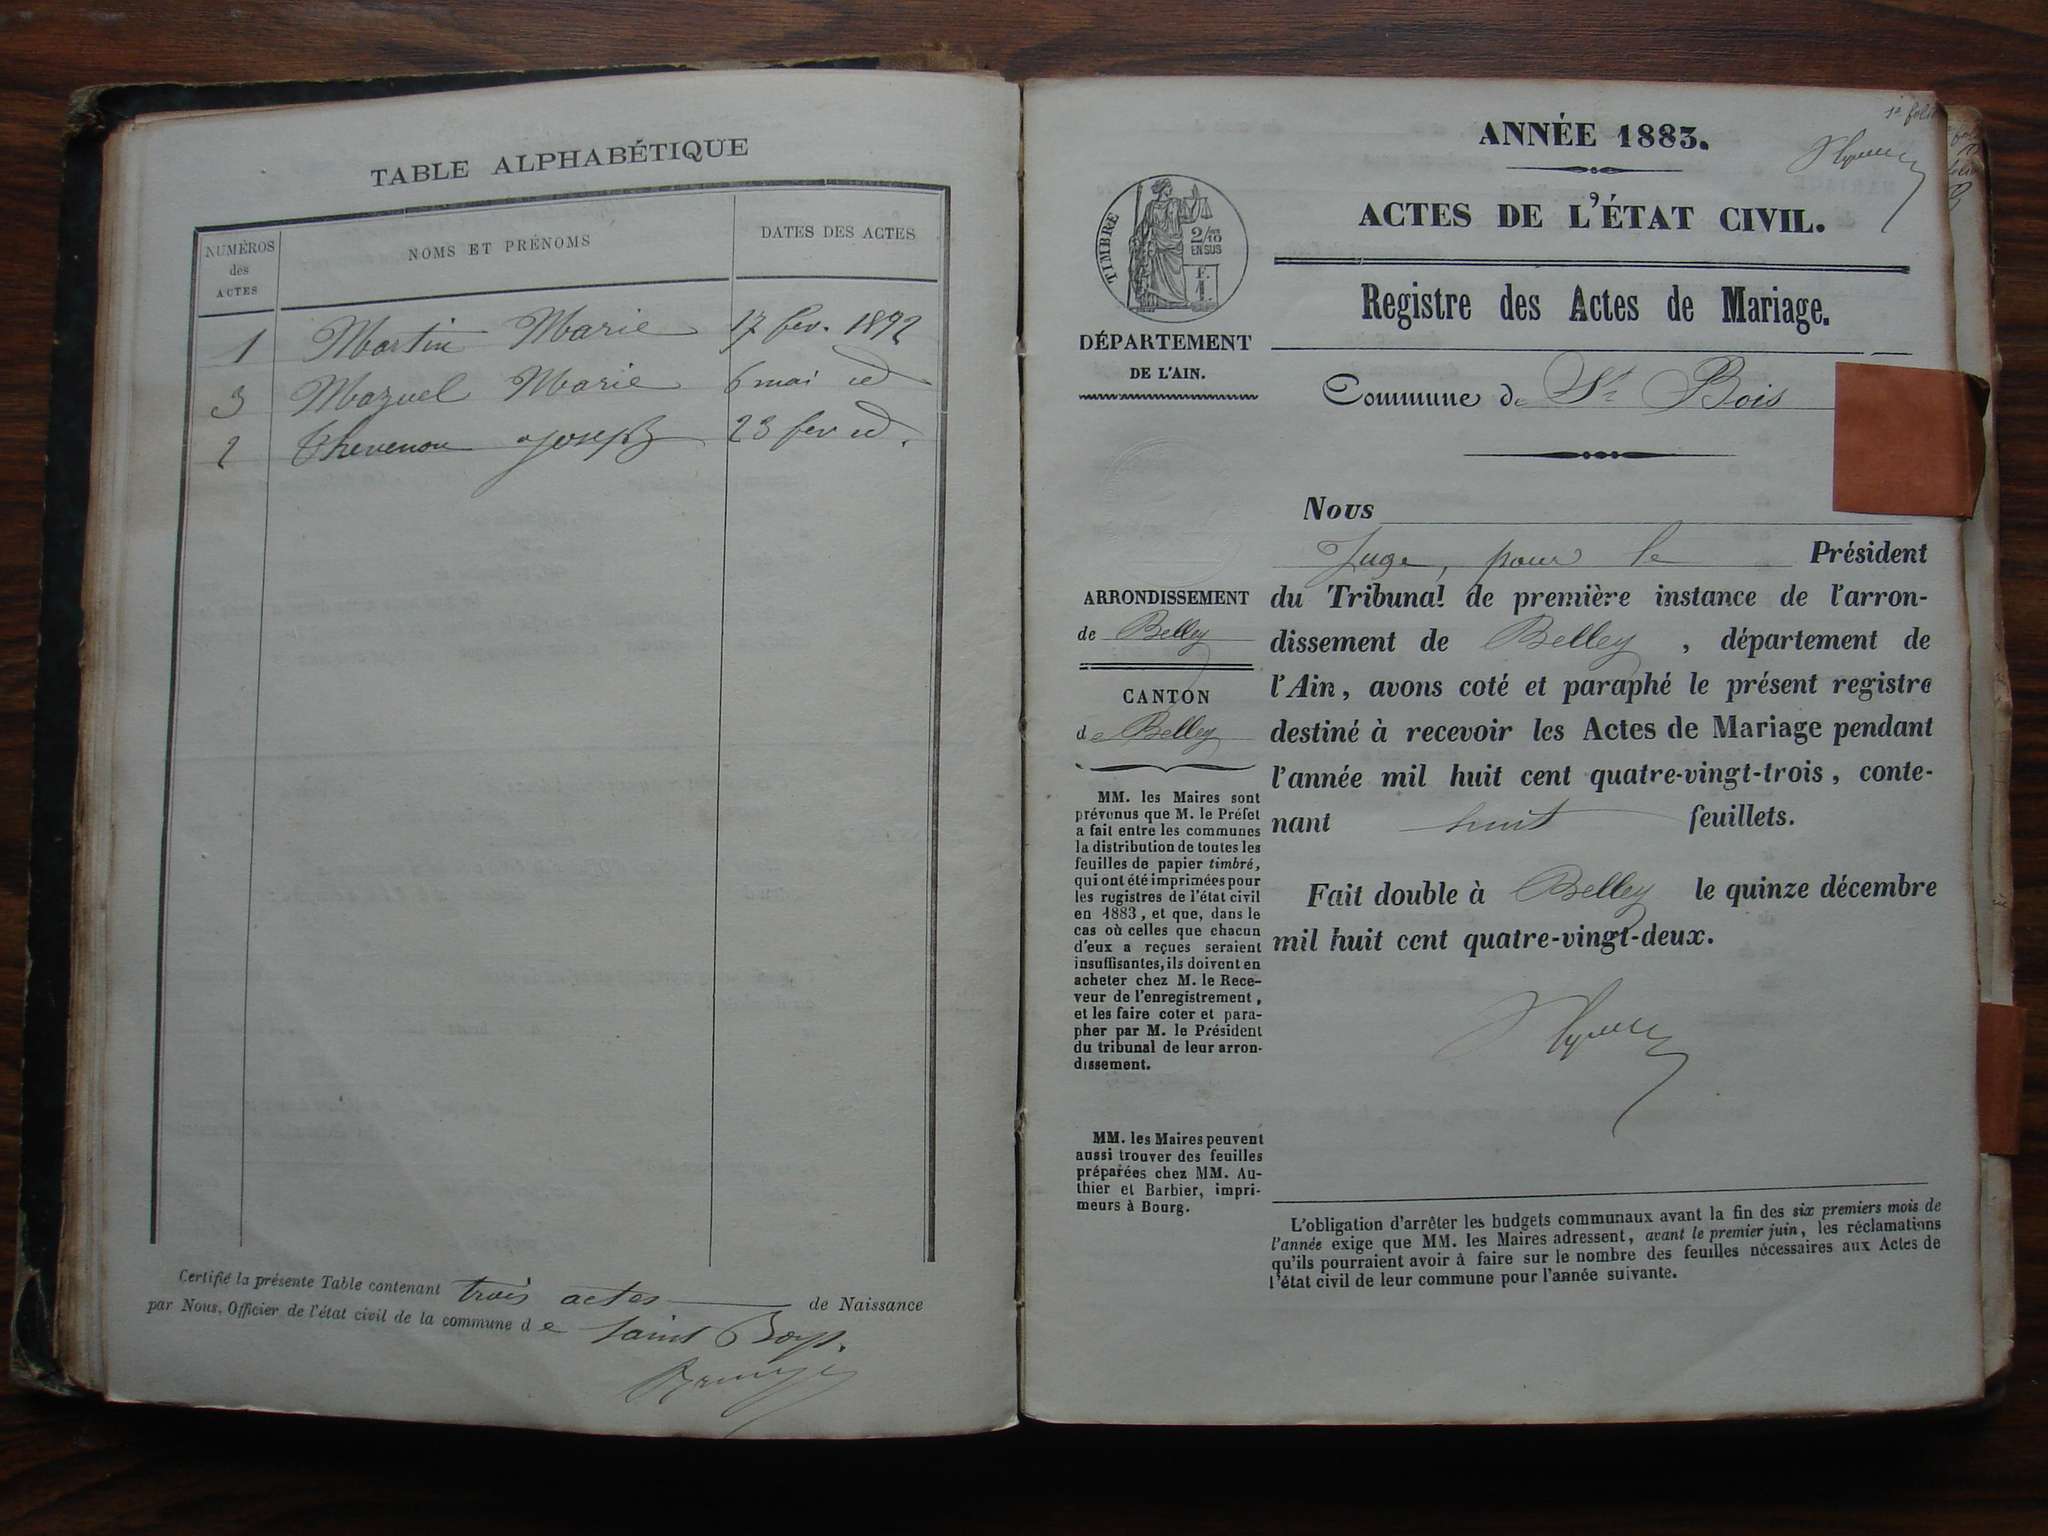 TABLE ALPHABÉTIQUE
NUMÉROS des ACTES
NOMS ET PRÉNOMS
DATES DES ACTES
1 Martin Marie 17 fev. 1892
3 Mazuel Marie 6 mai id
2 Thevenon Joseph 23 fev id.
Certifié la présente Table contenant trois actes de Naissance
par Nous, Officier de l'état civil de la commune de Saint Boys.
1er folio
ANNÉE 1883.
ACTES DE L'ÉTAT CIVIL.
Registre des Actes de Mariage.
TIMBRE
2/10
EN SUS
F.
1.
DÉPARTEMENT
DE L'AIN.
Commune de St Bois
Nous
Juge, pour le Président
du Tribunal de première instance de l'arron-
dissement de Belley, département de
l'Ain, avons coté et paraphé le présent registre
destiné à recevoir les Actes de Mariage pendant
l'année mil huit cent quatre-vingt-trois, conte-
nant huit feuillets.
Fait double à Belley le quinze décembre
mil huit cent quatre-vingt-deux.
ARRONDISSEMENT
de Belley
CANTON
de Belley
MM. les Maires sont
prévenus que M. le Préfet
a fait entre les communes
la distribution de toutes les
feuilles de papier timbré,
qui ont été imprimées pour
les registres de l'état civil
en 1883, et que, dans le
cas où celles que chacun
d'eux a reçues seraient
insuffisantes, ils doivent en
acheter chez M. le Rece-
veur de l'enregistrement,
et les faire coter et para-
pher par M. le Président
du tribunal de leur arron-
dissement.
MM. les Maires peuvent
aussi trouver des feuilles
préparées chez MM. Au-
thier et Barbier, impri-
meurs à Bourg.
L'obligation d'arrêter les budgets communaux avant la fin des six premiers mois de
l'année exige que MM. les Maires adressent, avant le premier juin, les réclamations
qu'ils pourraient avoir à faire sur le nombre des feuilles nécessaires aux Actes de
l'état civil de leur commune pour l'année suivante.